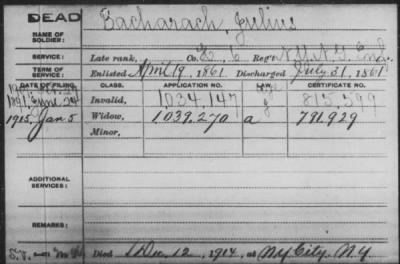 DEAD
NAME OF SOLDIER: Bacharach, Julius
SERVICE: Late rank, Co. E, 6 Reg't N.Y.N.G. Inf.
TERM OF SERVICE: Enlisted April 19, 1861 Discharged July 31, 1861
DATE OF FILING. CLASS. APPLICATION NO. LAW. CERTIFICATE NO.
1891 June 24 Invalid, 1,034,147 815,599
1915, Jan. 5 Widow, 1,039,270 a 791,929
Minor,
ADDITIONAL SERVICES:
REMARKS:
Died Dec. 12, 1914, at N.Y. City, N.Y.